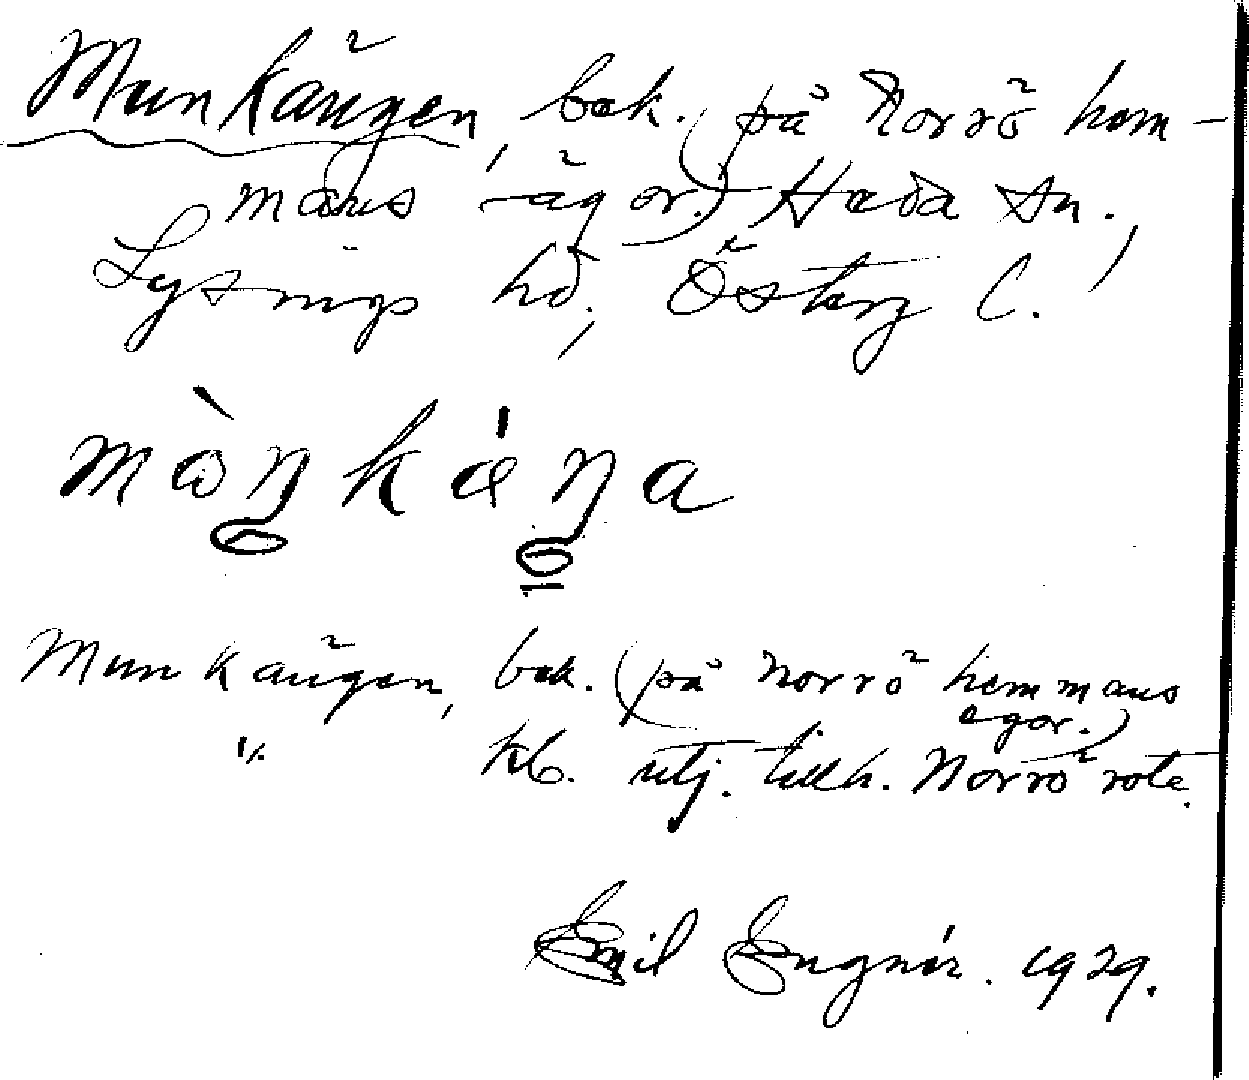 Munkängen, bak. (på Norrö hem-
mans ägor.) Heda sn.,
Lysings hd., Österg l.
mònkáŋa
Munkängen, bak. (på Norrö hemmans
egor.)
" kb. utj. tillh. Norrö rote.
Emil Engnér. 1929.